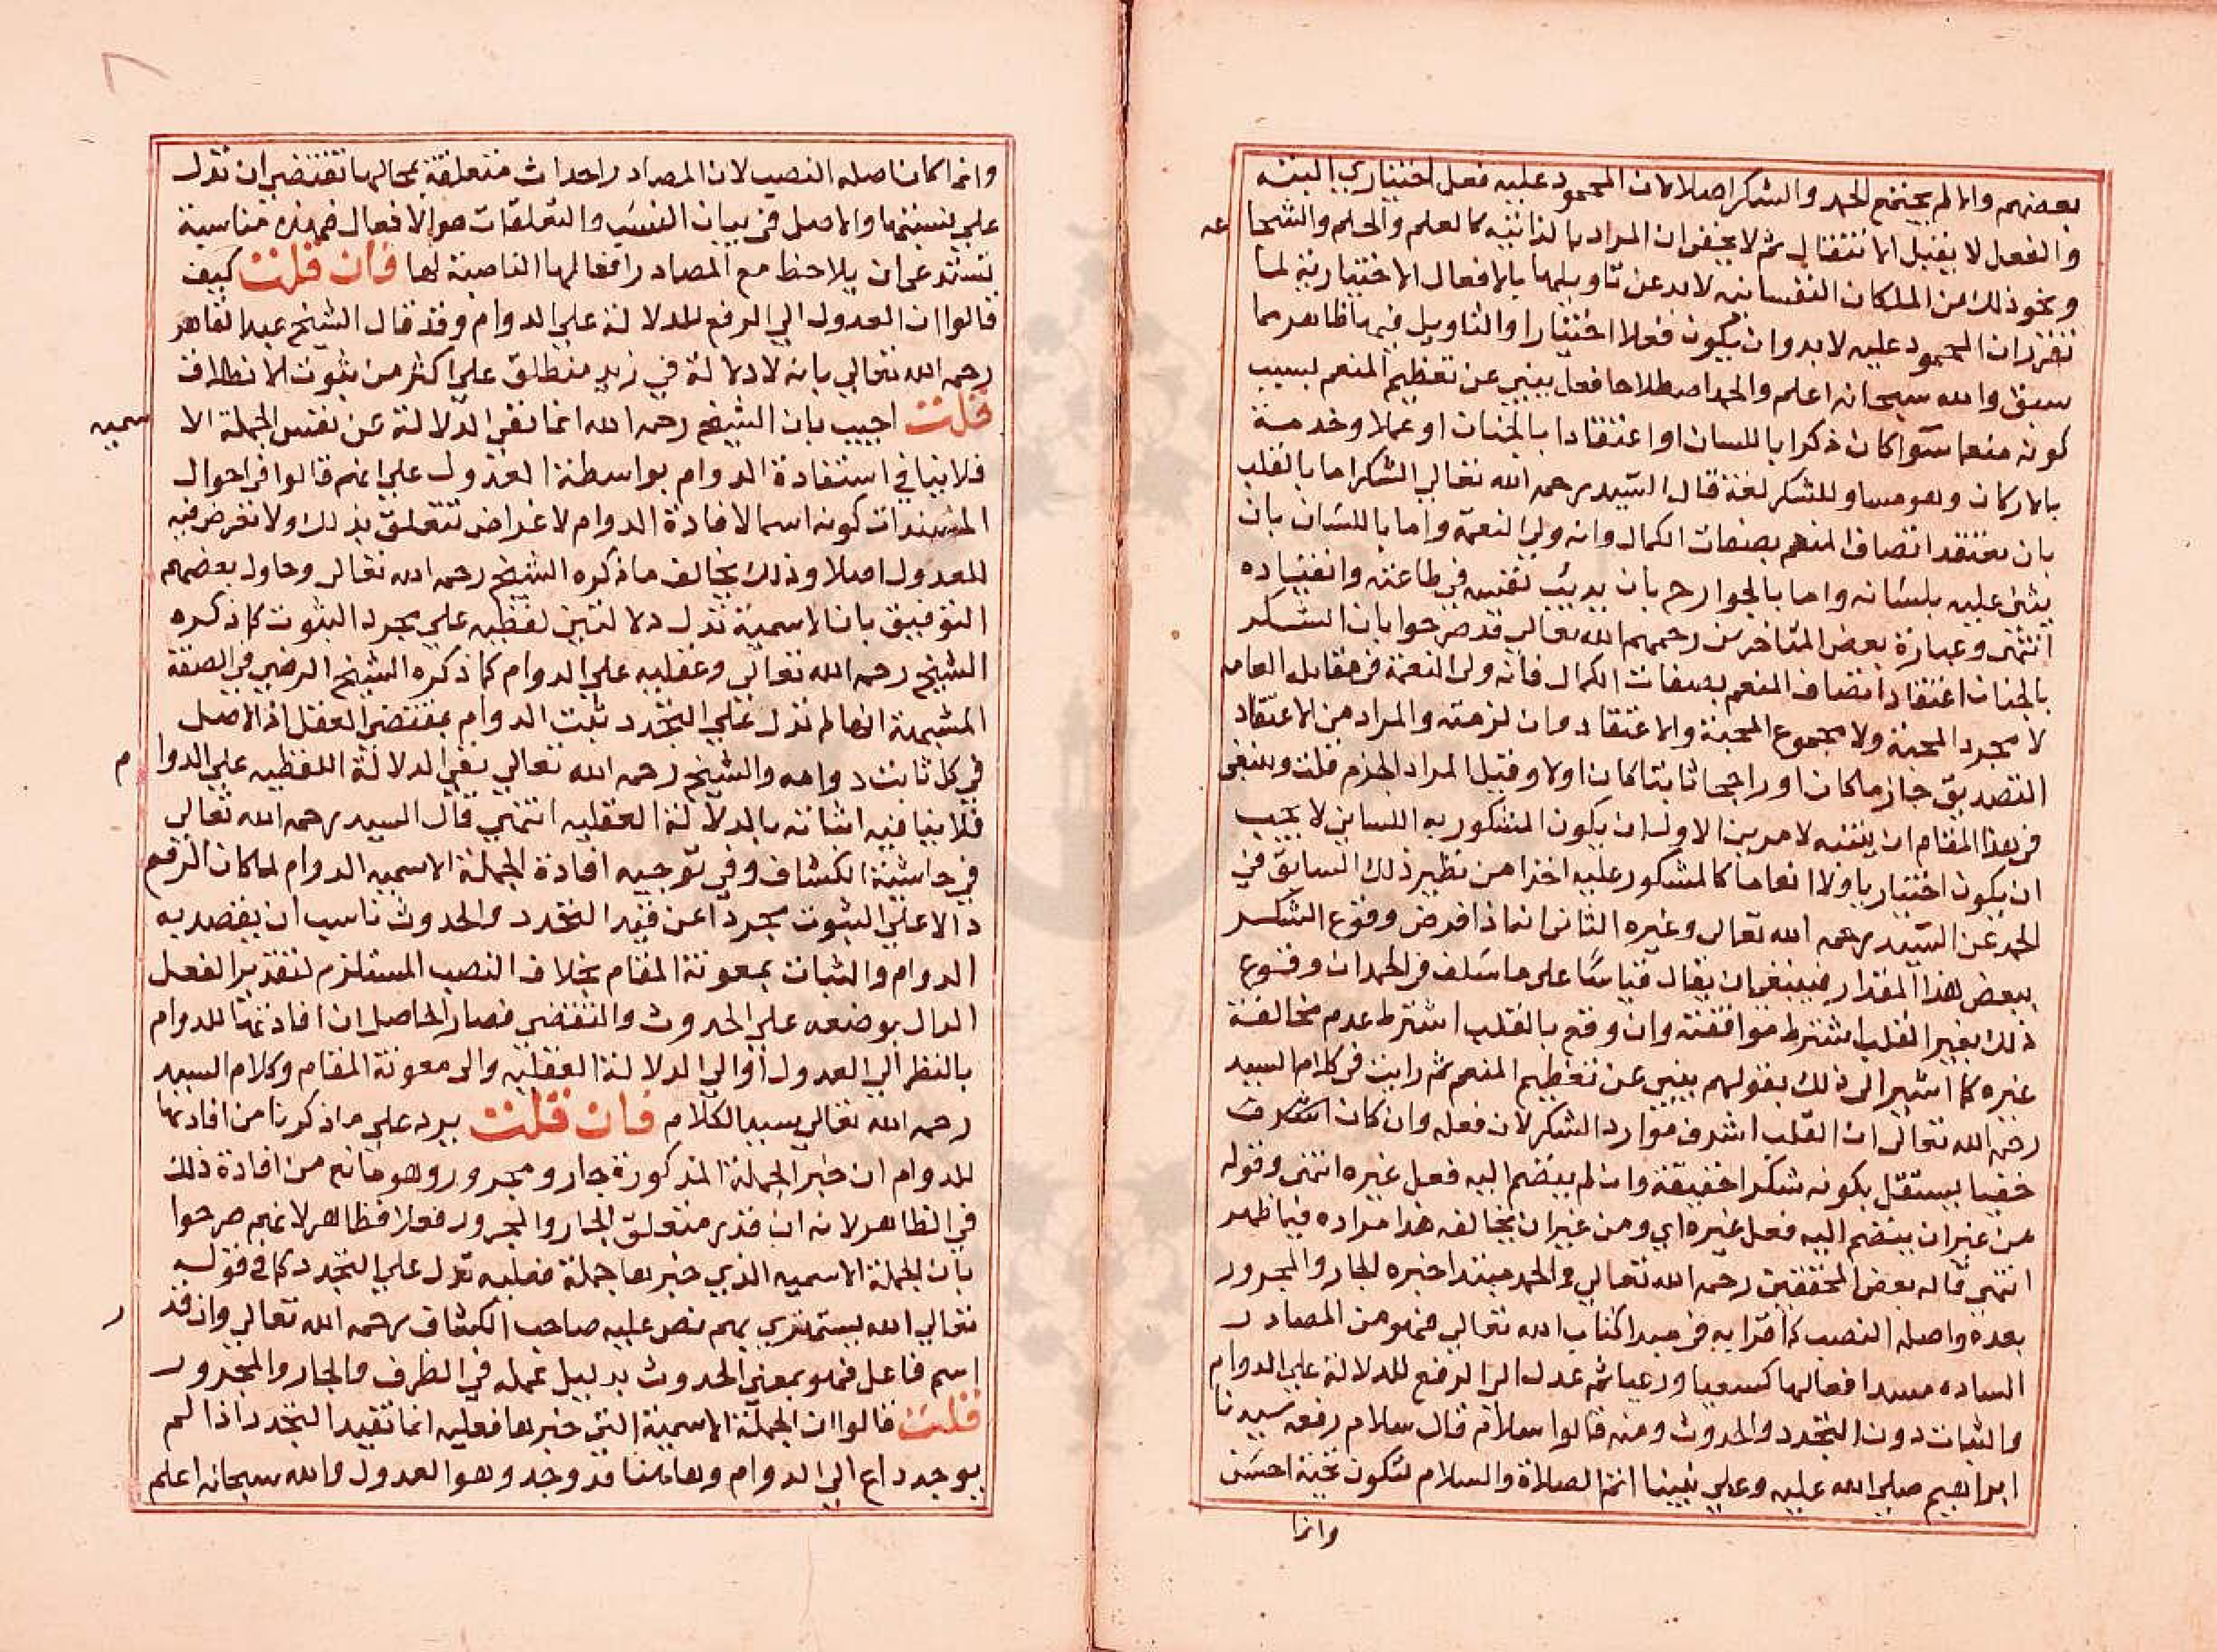 بعضهم والا لم يجتمع الحمد والشكر اصلا لان المحمود عليه فعل اختياري البتة
والفعل لا يقبل الانتقال ثم لا يخفى ان المراد بالذاتية كالعلم والحلم والشجا
عه
ونحو ذلك من الملكات النفسانية لابد عن تاويلها بالافعال الاختيارية لما
تقرر ان المحمود عليه لابد وان يكون فعلا اختياريا والتاويل فيها ظاهر مما
سبق والله سبحانه اعلم والحمد اصطلاحا فعل ينبي عن تعظيم المنعم لسبب
كونه منعما سوآ كان ذكرا باللسان او اعتقادا بالجنان او عملا وخدمة
بالاركان وهو مساو للشكر لغة قال السيد رحمه الله تعالي الشكر اما بالقلب
بان يعتقد اتصاف المنعم بصفات الكمال وانه ولي النعمة واما باللسان بان
يثني عليه بلسانه واما بالجوارح بان يديب نفسه في طاعته وانقياده
انتهى وعبارة بعض المتاخرين رحمهم الله تعالي قد صرحوا بان الشكر
بالجنان اعتقاد اتصاف المنعم بصفات الكمال فانه ولي النعمة في مقابل العامه
لا مجرد المحبة ولا مجموع المحبة والاعتقاد وان لزمته والمراد من الاعتقاد
التصديق جازما كان او راجحا ثابتا كان اولا وقيل المراد الجزم قلت وينبغي
في هذا المقام ان يتنبه لامرين الاول ان يكون المشكور به اللساني لا يجب
ان يكون اختياريا ولا انعاما كالمشكور عليه اخذا من نظير ذلك السابق في
الحمد عن السيد رحمه الله تعالى وغيره الثاني انما اذا فرض وقوع الشكر
ببعض هذا المقدار فينبغي ان يقال قياسا على ما سلف في الحمد ان وقوع
ذلك بغير القلب اشترط موافقته وان وقع بالقلب اشترط عدم مخالفة
غيره كما اشير الى ذلك بقولهم ينبي عن تعظيم المنعم ثم رايت في كلام السيد
رحمه الله تعالى ان القلب اشرف موارد الشكر لان فعله وان كان
خفيا يستقل بكونه شكرا حقيقة وان لم ينضم اليه فعل غيره انتهى وقوله
من غير ان ينضم اليه فعل غيره اي ومن غير ان يخالفه هذا مراده فيما ظهر
انتهى قاله بعض المحققين رحمه الله تعالي والحمد مبتدا خبره الجار والمجرور
بعده واصله النصب كما قرا به في مبدا كتاب الله تعالي فهو من المصادر
الساده مسد افعالها كسقيا ورعيا ثم عدل الى الرفع للدلالة علي الدوام
والثبات دون التجدد والحدوث ومنه قالوا سلاما قال سلام رفعه سيدنا
ابراهيم صلي الله عليه وعلي نبينا اتم الصلاة والسلام لتكون تحيته احسن
وانما
وانما كان اصله النصب لان المصادر احداث متعلقة بمحالها تقتضي ان تدل
علي نسبتها والاصل في بيان النسب والتعلقات هو الافعال فهذه مناسبة
تستدعي ان يلاحظ مع المصادر افعالها الناصبة لها فان قلت كيف
قالوا ان العدول الي الرفع للدلالة علي الدوام وقد قال الشيخ عبد القاهر
رحمه الله تعالي بانه لا دلالة في زيد منطلق علي اكثر من ثبوت الانطلاق
قلت اجيب بان الشيخ رحمه الله انما نفي الدلالة عن نفس الجملة الا
سميه
فلا ينافي استفادة الدوام بواسطة العدول علي انهم قالوا في احوال
المسند ان كونه اسما لافادة الدوام لاغراض تتعلق بذلك ولا تعرض فيه
للعدول اصلا وذلك يخالف ما ذكره الشيخ رحمه الله تعالى وحاول بعضهم
التوفيق بان الاسمية تدل دلالتين لفظيه علي مجرد الثبوت كما ذكره
الشيخ رحمه الله تعالي وعقليه علي الدوام كما ذكره الشيخ الرضي في الصفة
المشبهة انها لم تدل علي التجدد ثبت الدوام بمقتضى العقل اذ الاصل
في كل ثابت دوامه والشيخ رحمه الله تعالي نفي الدلالة اللفظيه علي الدوا
م
فلا ينافيه اثباته بالدلالة العقليه انتهي قال السيد رحمه الله تعالي
في حاشية الكشاف وفي توجيه افادة الجملة الاسميه الدوام لما كان الرفع
دالا علي الثبوت مجردا عن قيد التجدد والحدوث ناسب ان يقصد به
الدوام والثبات بمعونة المقام بخلاف النصب المستلزم لتقدير الفعل
الدال بوضعه علي الحدوث والتقضي فصار الحاصل ان افادتها للدوام
بالنظر الي العدول او الي الدلالة العقليه والى معونة المقام وكلام السيد
رحمه الله تعالي سيد الكلام فان قلت يرد علي ما ذكرنا من افادتها
للدوام ان خبر الجملة المذكورة جار ومجرور وهو مانع من افادة ذلك
في الظاهر لانه ان قدر متعلق الجار والمجرور فعلا فظاهر لانهم صرحوا
بان الجملة الاسميه الذي خبرها جملة فعليه تدل علي التجدد كما في قوله
تعالي الله يستهزي بهم نص عليه صاحب الكشاف رحمه الله تعالي وان قد
ر
اسم فاعل فهو بمعنى الحدوث بدليل عمله في الظرف والجار والمجرور
قلت قالوا ان الجملة الاسمية التي خبرها فعليه انما تفيد التجدد اذا لم
يوجد داع الي الدوام وهاهنا قد وجد وهو العدول والله سبحانه اعلم